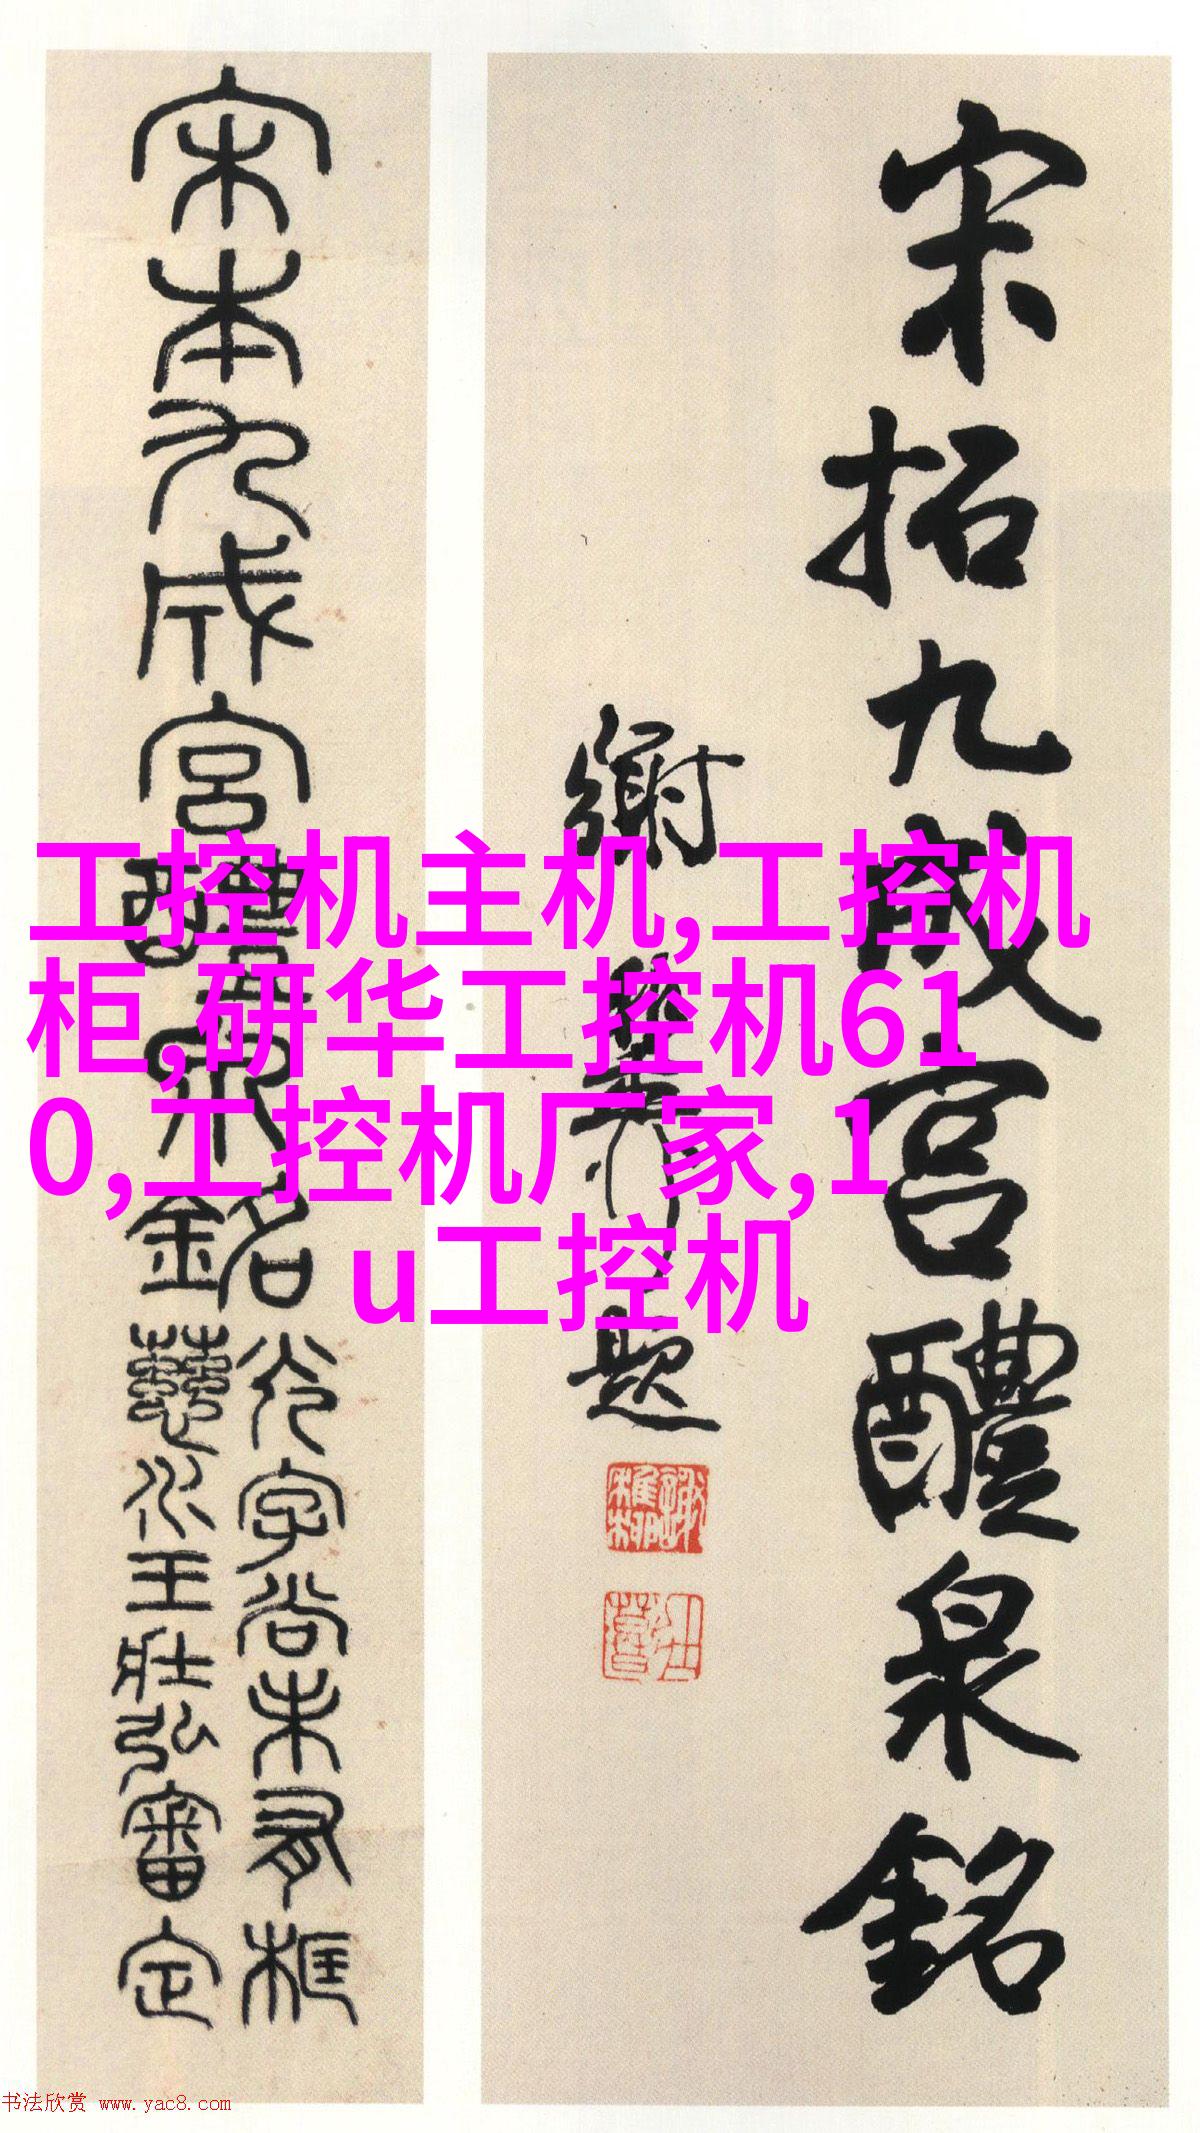 宋拓九成宮醴泉銘
謝稚柳題
宋本九成宮醴泉銘
光字尚未有框
金蕤
心王壮弘審定
工控机主机,工控机
柜,研华工控机61
0,工控机厂家,1
u工控机
书法欣赏 www.yac8.com